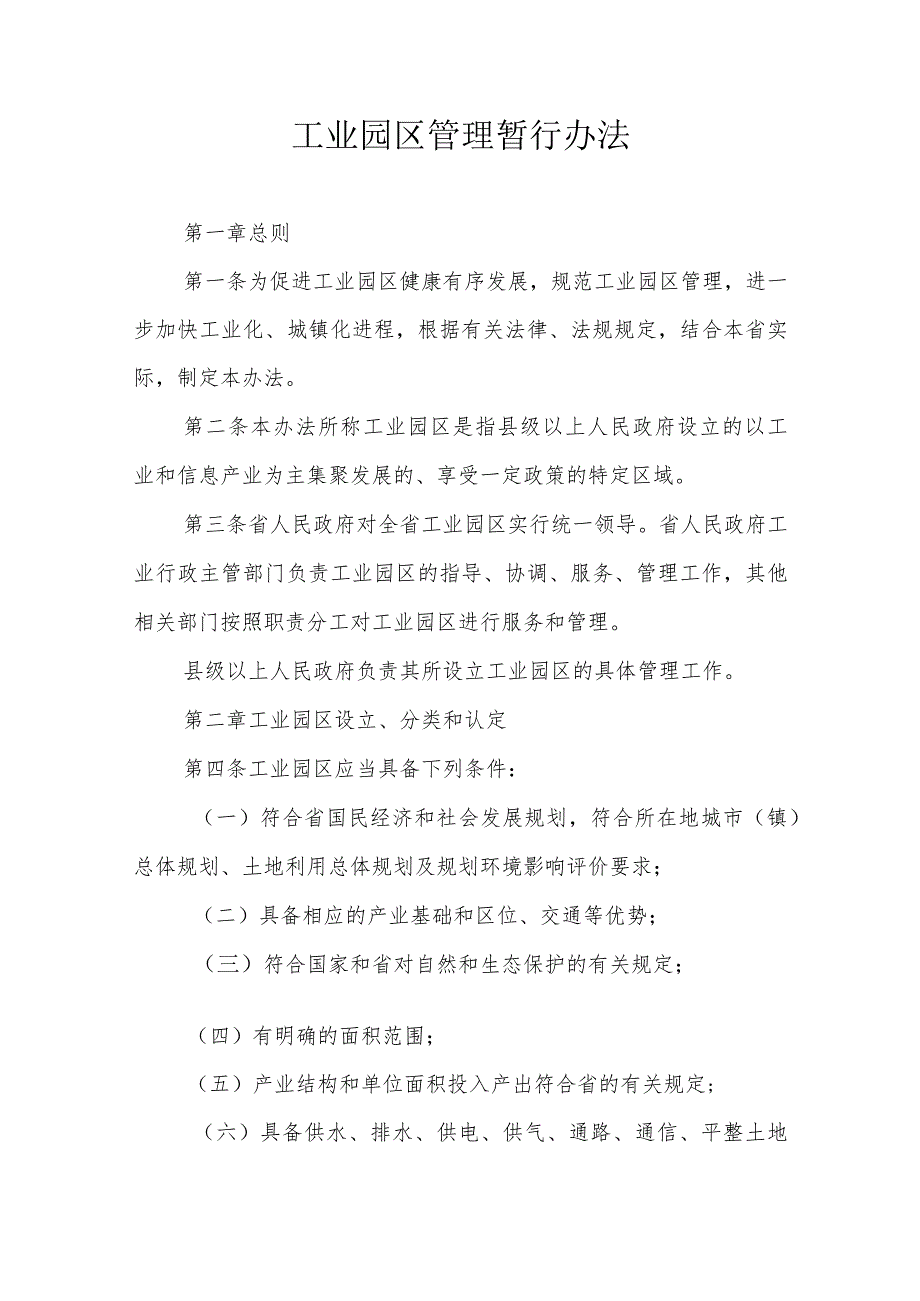 工业园区管理暂行办法
第一章总则
第一条为促进工业园区健康有序发展，规范工业园区管理，进一
步加快工业化、城镇化进程，根据有关法律、法规规定，结合本省实
际，制定本办法。
第二条本办法所称工业园区是指县级以上人民政府设立的以工
业和信息产业为主集聚发展的、享受一定政策的特定区域。
第三条省人民政府对全省工业园区实行统一领导。省人民政府工
业行政主管部门负责工业园区的指导、协调、服务、管理工作，其他
相关部门按照职责分工对工业园区进行服务和管理。
县级以上人民政府负责其所设立工业园区的具体管理工作。
第二章工业园区设立、分类和认定
第四条工业园区应当具备下列条件：
（一）符合省国民经济和社会发展规划，符合所在地城市（镇）
总体规划、土地利用总体规划及规划环境影响评价要求；
（二）具备相应的产业基础和区位、交通等优势；
（三）符合国家和省对自然和生态保护的有关规定；
（四）有明确的面积范围；
（五）产业结构和单位面积投入产出符合省的有关规定;
（六）具备供水、排水、供电、供气、通路、通信、平整土地